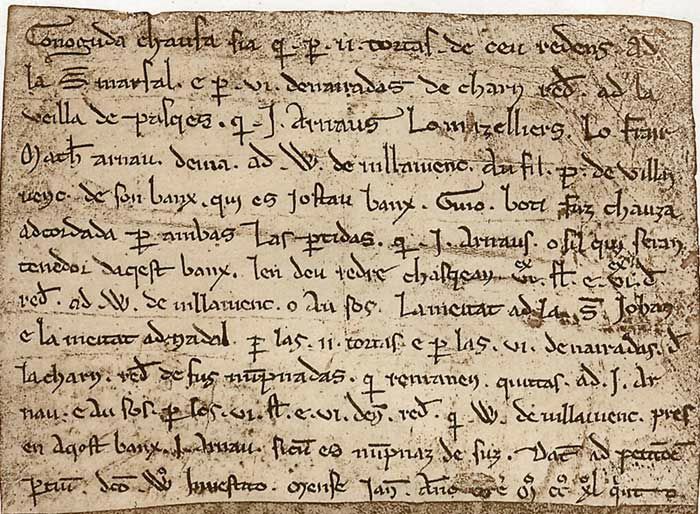 Conoguda chausa sia q. p. ii. tortas. de ceu redens. ad
la S marsal. e p. vi. denairadas de charn red. ad la
veilla de pasqes. q. J. Arnaus Lo mazelliers. Lo frair
Math arnau. devia. ad. W. de villavenc. Au fil. p. de villa
venc. de son banx. qui es jostau banx. Guio. boti fuz chauza
adcordada p ambas Las ptidas. q. J. Arnaus. o sil qui seran
tenedor daqest banx. len deu redre chasqean vi. ss. e. vi. d
red. ad. W. de villavenc. o Au sos. La meitat ad la. S. Johan
e la meitat ad nadal. p las. ii. tortas. e p las. vi. denairadas. d
la charn. red. de sus nupnadas. q remanen. quittas. ad. J. Ar
nau. e Au sos. p los. vi. ss. e. vi. des. red. q. W. de villavenc. pres
en aqest banx. J. Arnau. sicu es nupnaz de suz. Dat ad peticoe
ptiu. dco Wo Mense Jan. Ano M CC XL